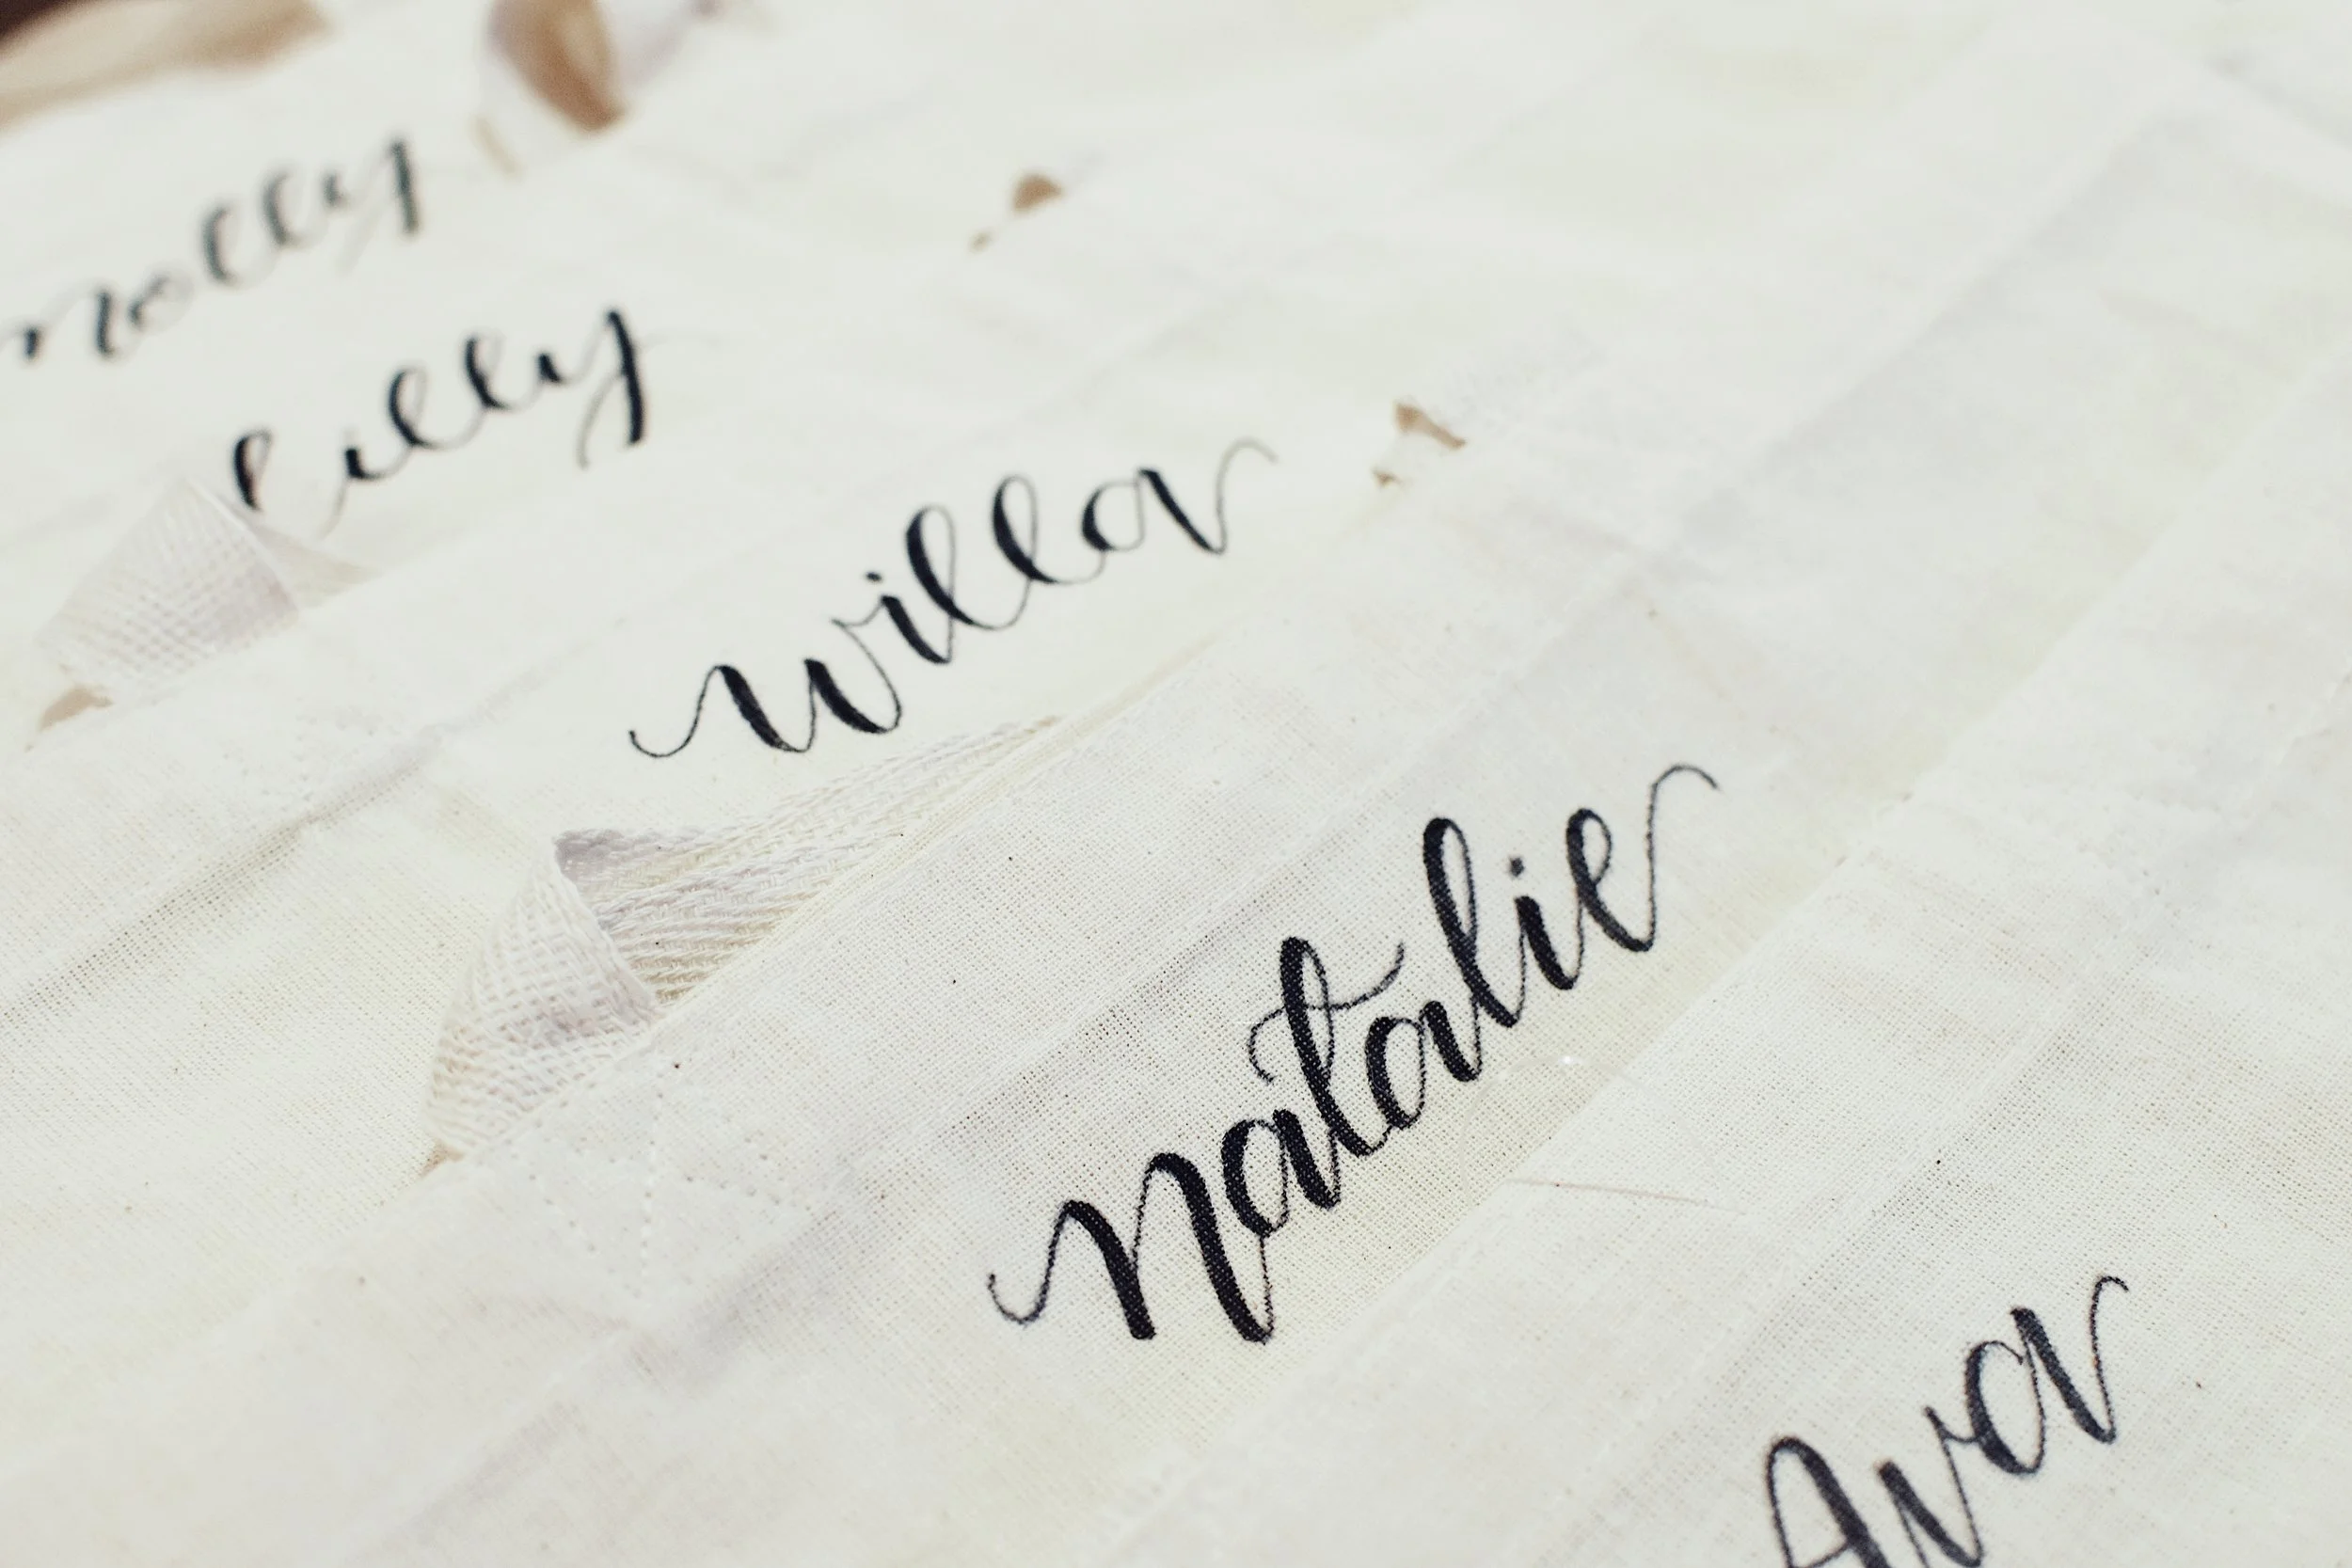 molly
lilly
willa
natalie
Ava